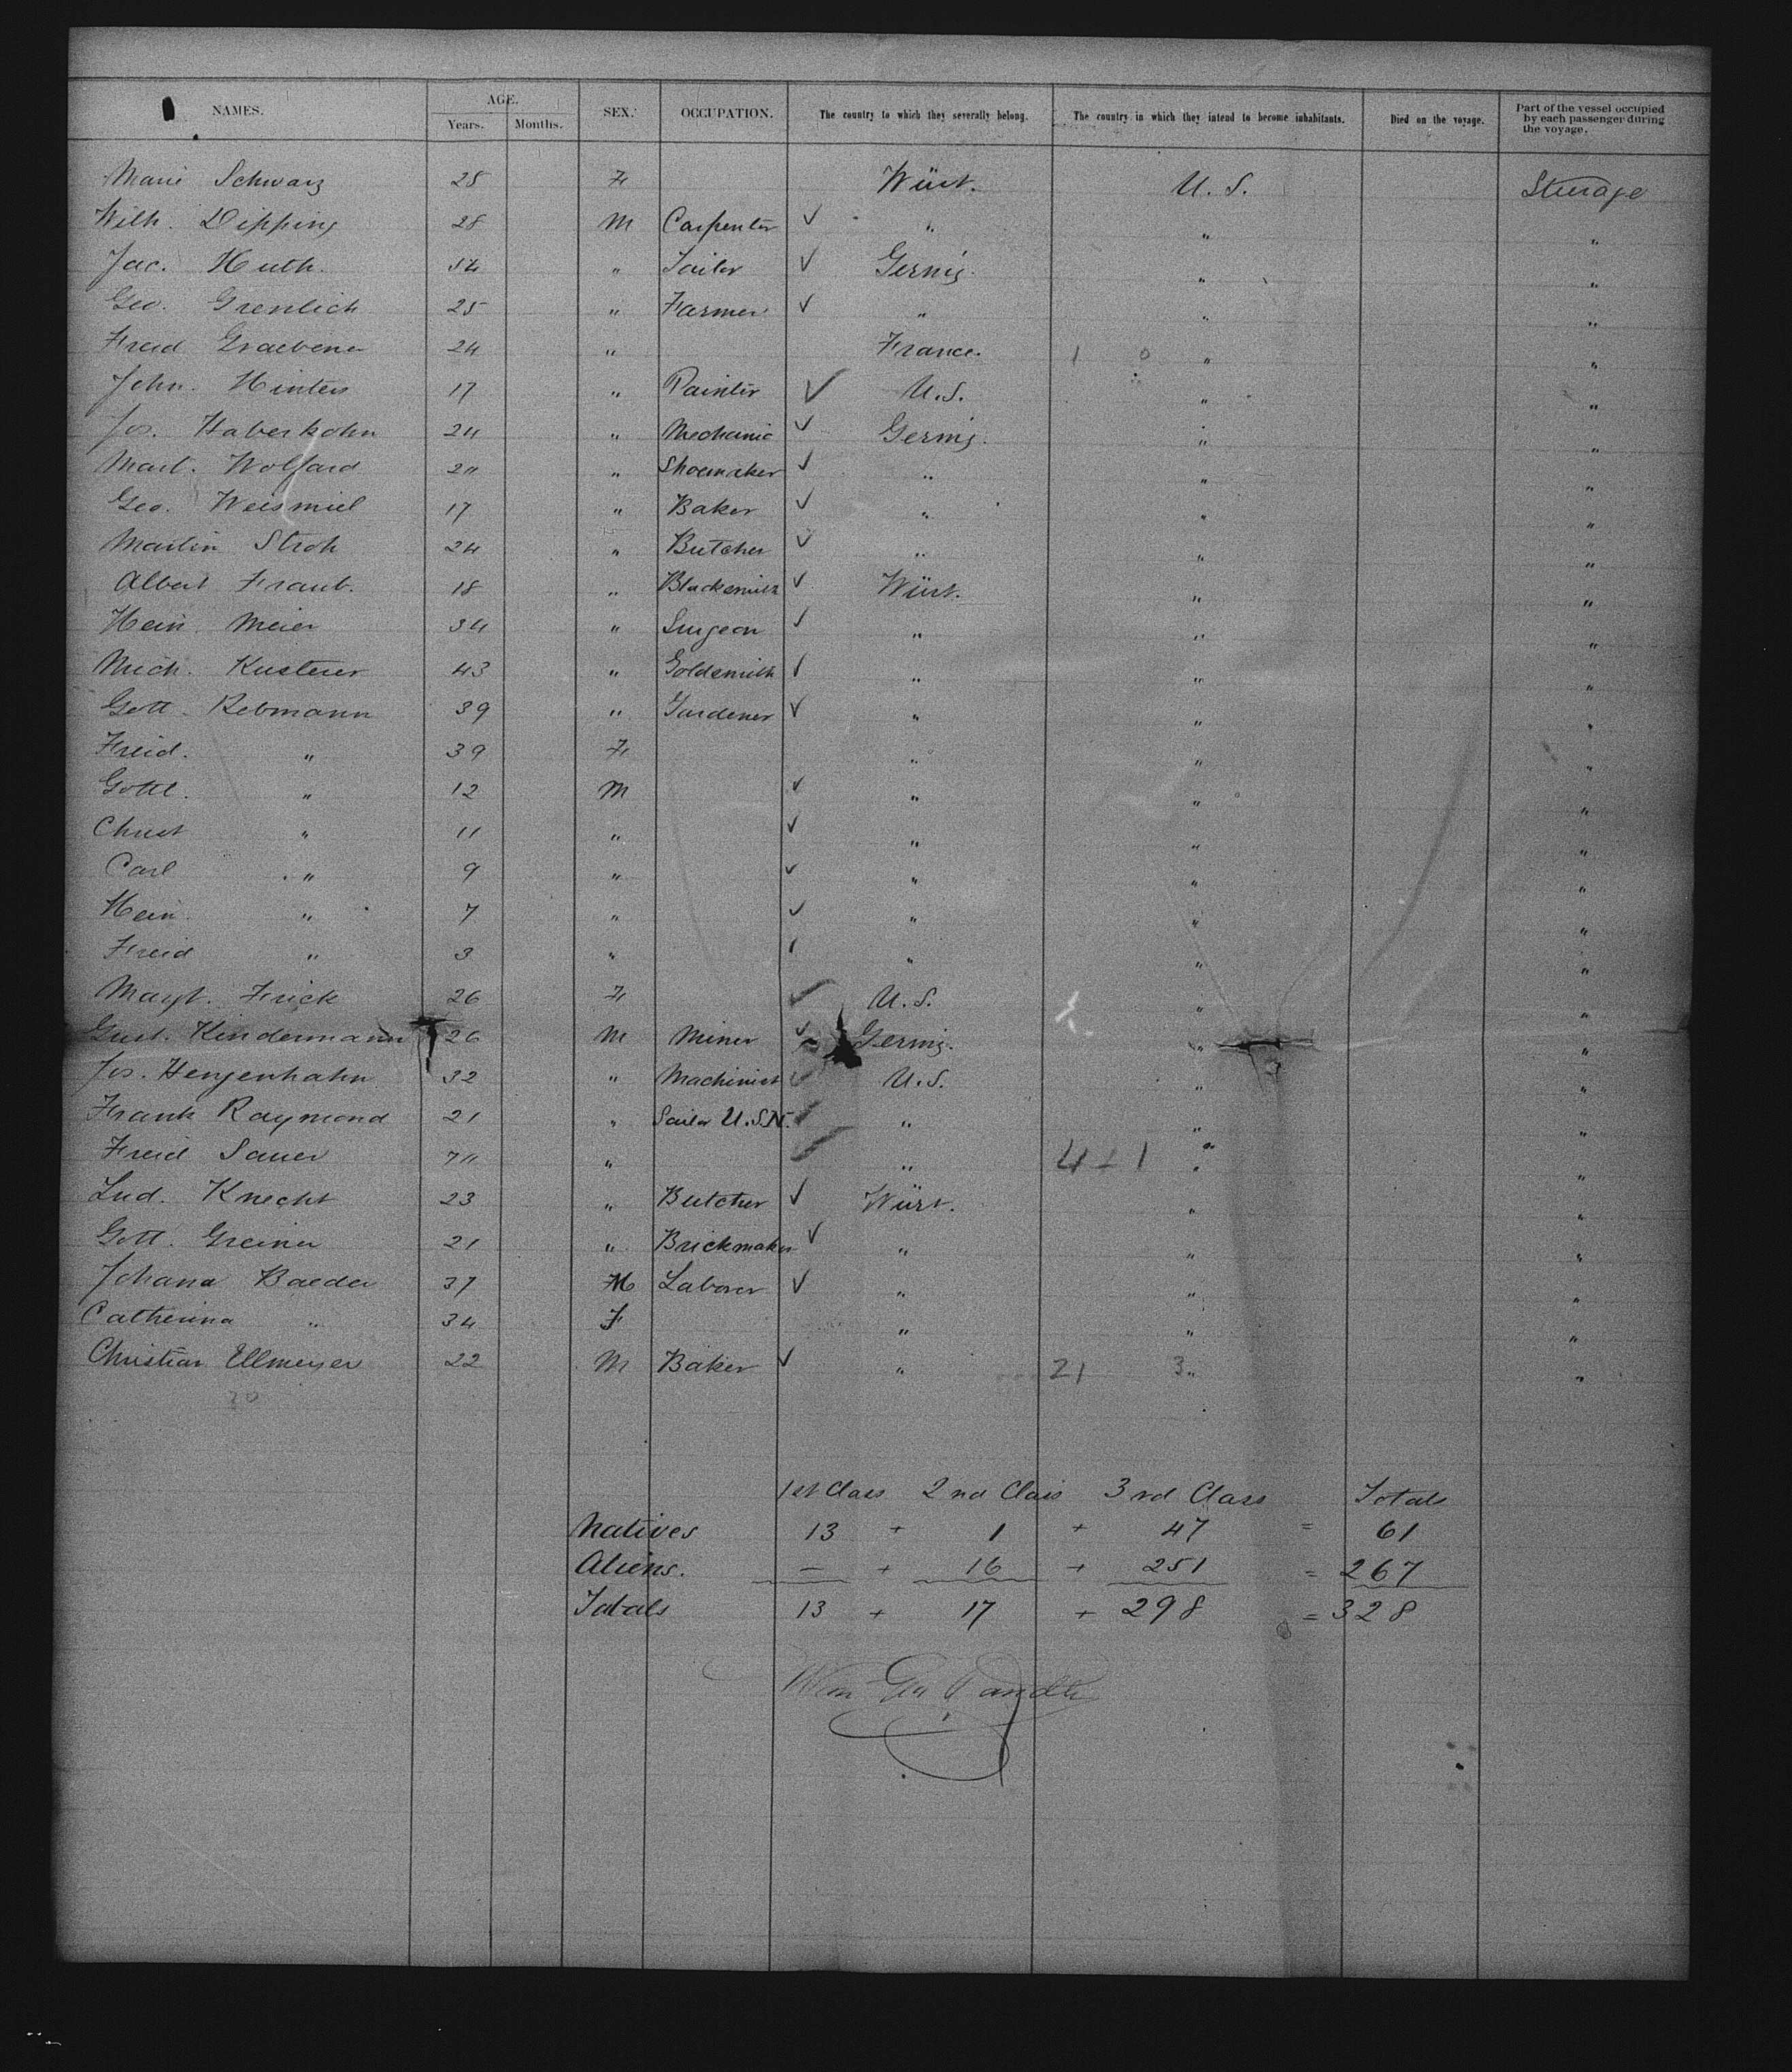 NAMES. AGE. Years. Months. SEX. OCCUPATION. The country to which they severally belong. The country in which they intend to become inhabitants. Died on the voyage. Part of the vessel occupied by each passenger during the voyage.
Marie Schwarz 28 F Würt. U.S. Steerage
Wilh. Dipping 28 M Carpenter ✓ " " "
Jac. Huth. 54 " Tailor ✓ Germy. " "
Geo. Grenlich 25 " Farmer ✓ " " "
Freid Graebener 24 " France. 1 0 " "
John. Hinters 17 " Painter ✓ U.S. " "
Jos. Haberkohn 24 " Mechanic ✓ Germy. " "
Mart. Wolfard 24 " Shoemaker ✓ " " "
Geo. Weismiel 17 " Baker ✓ " " "
Martin Stroh 24 " Butcher ✓ " " "
Albert Fraub. 18 " Blacksmith ✓ Würt. " "
Hein. Meier 34 " Surgeon ✓ " " "
Mich. Kusterer 43 " Goldsmith ✓ " " "
Gott. Rebmann 39 " Gardener ✓ " " "
Freid. " 39 F " " "
Gottl. " 12 M ✓ " " "
Christ " 11 " ✓ " " "
Carl " 9 " ✓ " " "
Hein. " 7 " ✓ " " "
Freid " 3 " ✓ " " "
Magt. Frick 26 F ✓ U.S. " "
Gust. Kindermann 26 M Miner ✓ Germy. " "
Jos. Hengenhahn 32 " Machinist ✓ U.S. " "
Frank Raymond 21 " Sailor U.S.N. ✓ " " "
Freid Sauer " ✓ " 4 + 1 " "
Lud. Knecht 23 " Butcher ✓ Würt. " "
Gott. Greiner 21 " Brickmaker ✓ " " "
Johana Baeder 37 M Laborer ✓ " " "
Catherina " 34 F " " "
Christian Ellmeyer 22 M Baker ✓ " 21 3 " "
30
1st Class 2nd Class 3rd Class Totals
Natives 13 + 1 + 47 = 61
Aliens. — + 16 + 251 = 267
Totals 13 + 17 + 298 = 328